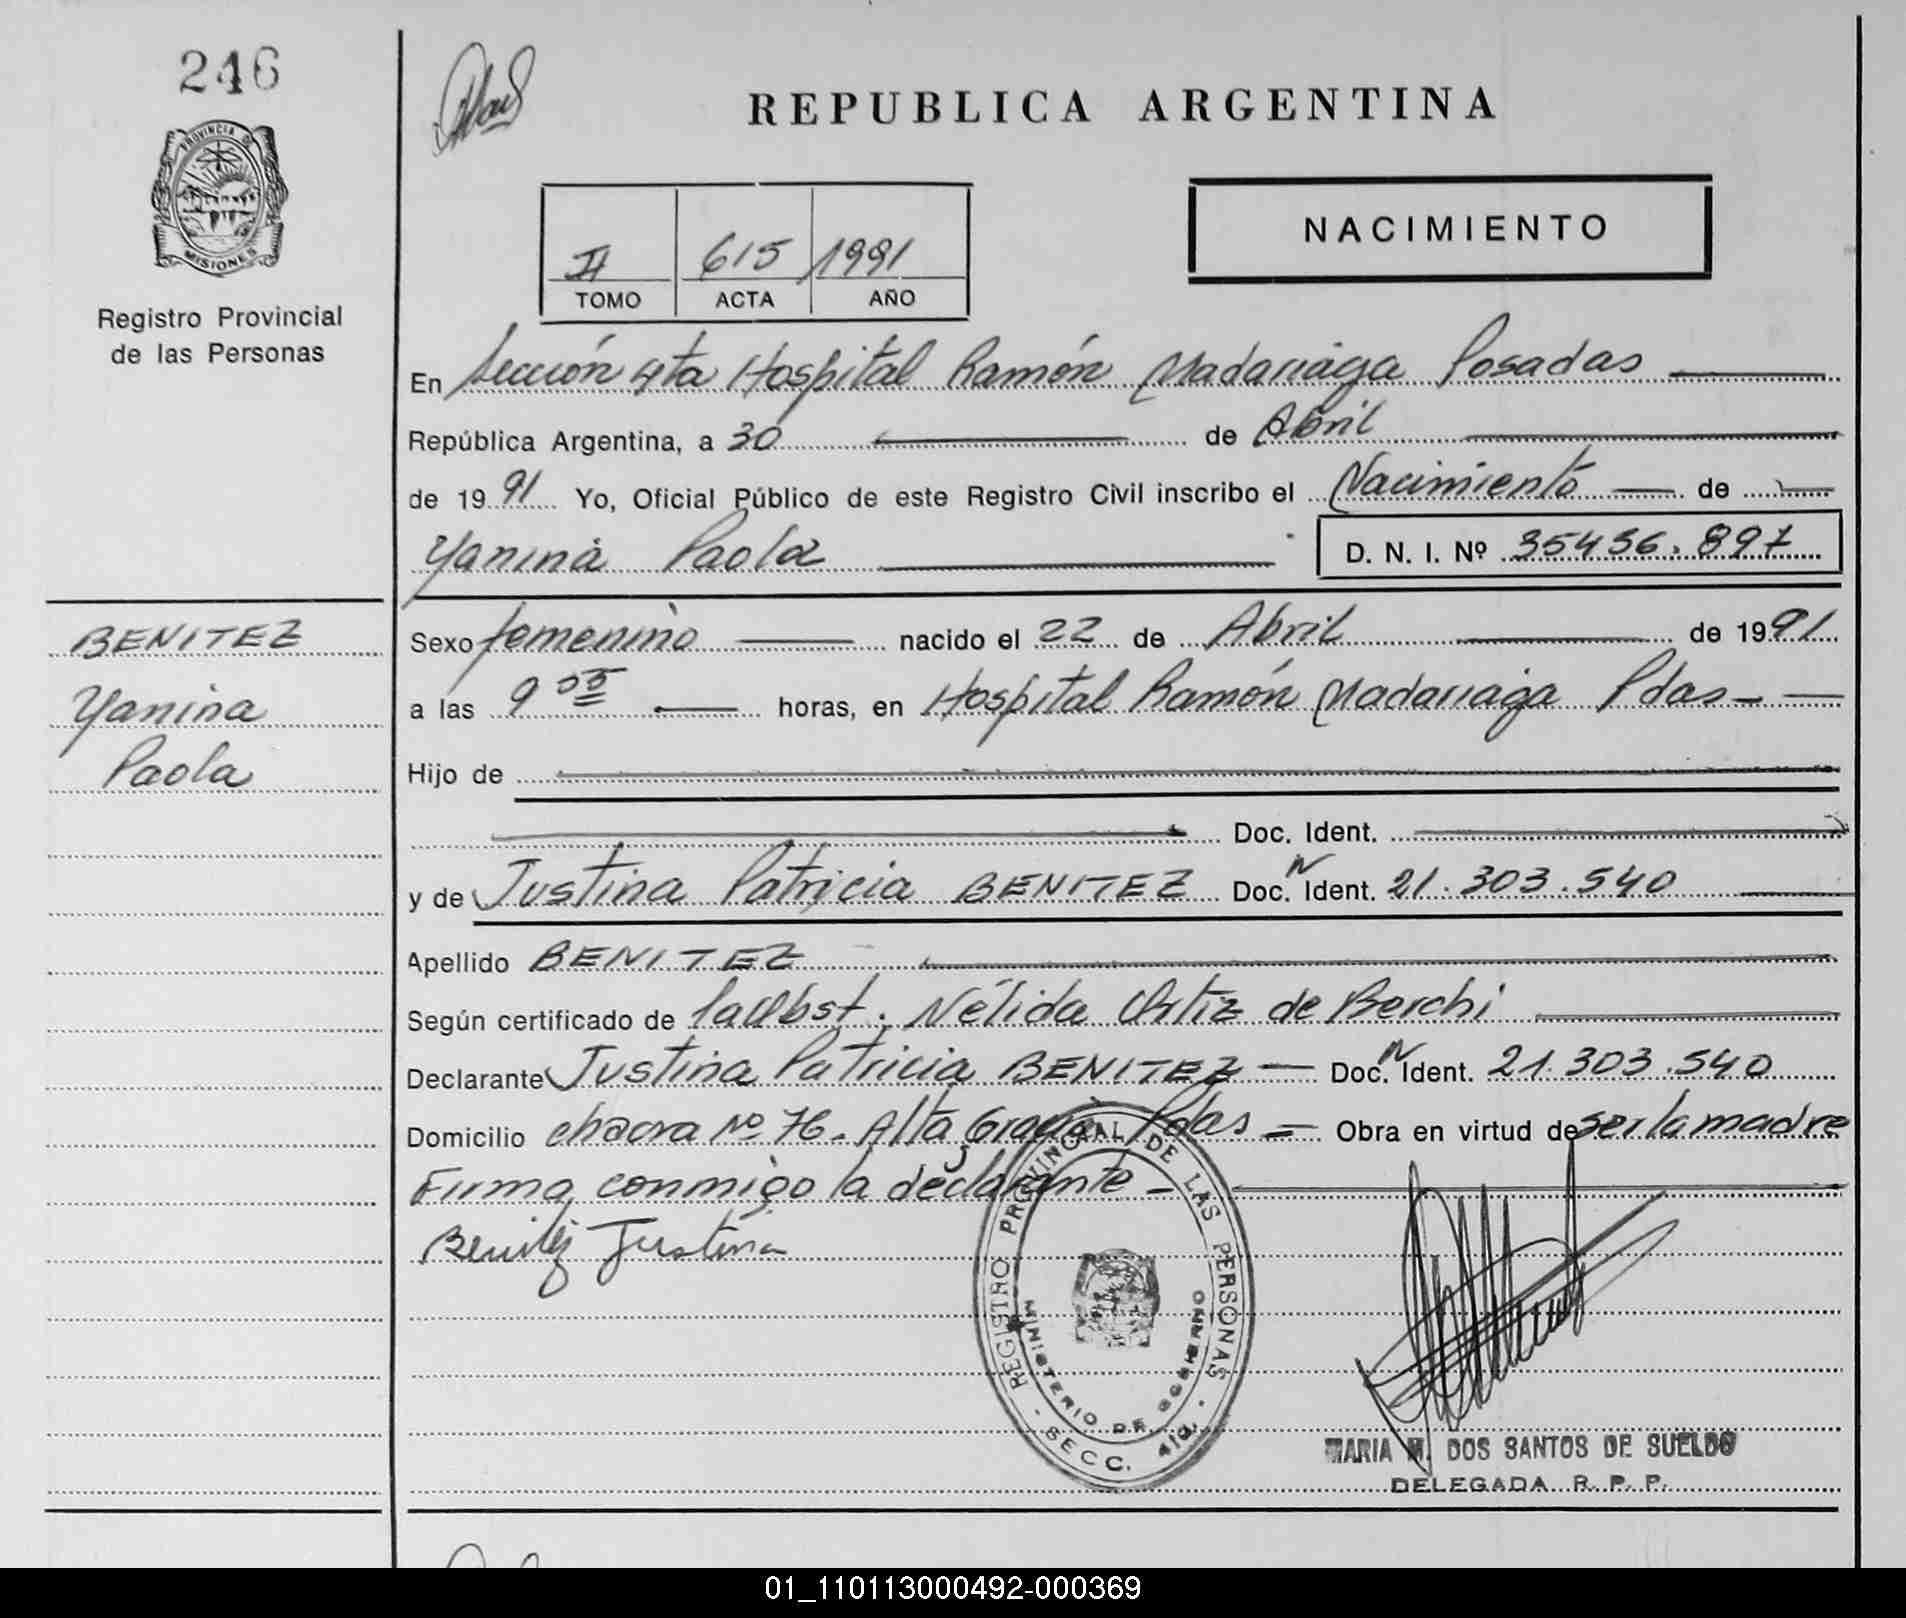 246
PROVINCIA DE
MISIONES
Registro Provincial
de las Personas
REPUBLICA ARGENTINA
NACIMIENTO
II 615 1991
TOMO ACTA AÑO
En Sección 4ta Hospital Ramón Madariaga Posadas
República Argentina, a 30 de Abril
de 1991 Yo, Oficial Público de este Registro Civil inscribo el Nacimiento de
Yanina Paola D. N. I. Nº 35456.897
BENITEZ
Yanina
Paola
Sexo femenino nacido el 22 de Abril de 1991
a las 9 05 horas, en Hospital Ramón Madariaga Pdas-
Hijo de
Doc. Ident.
y de Justina Patricia BENITEZ Doc. N Ident. 21.303.540
Apellido BENITEZ
Según certificado de la Obst. Nélida Ortiz de Berchi
Declarante Justina Patricia BENITEZ Doc. N Ident. 21.303.540
Domicilio chacra Nº 76. Alta Gracia Pdas Obra en virtud de ser la madre
Firma conmigo la declarante -
Benitez Justina
REGISTRO PROVINCIAL DE LAS PERSONAS
MINISTERIO DE GOBIERNO
- SECC. 4ta. -
MARIA M. DOS SANTOS DE SUELDO
DELEGADA R. P. P.
01_110113000492-000369